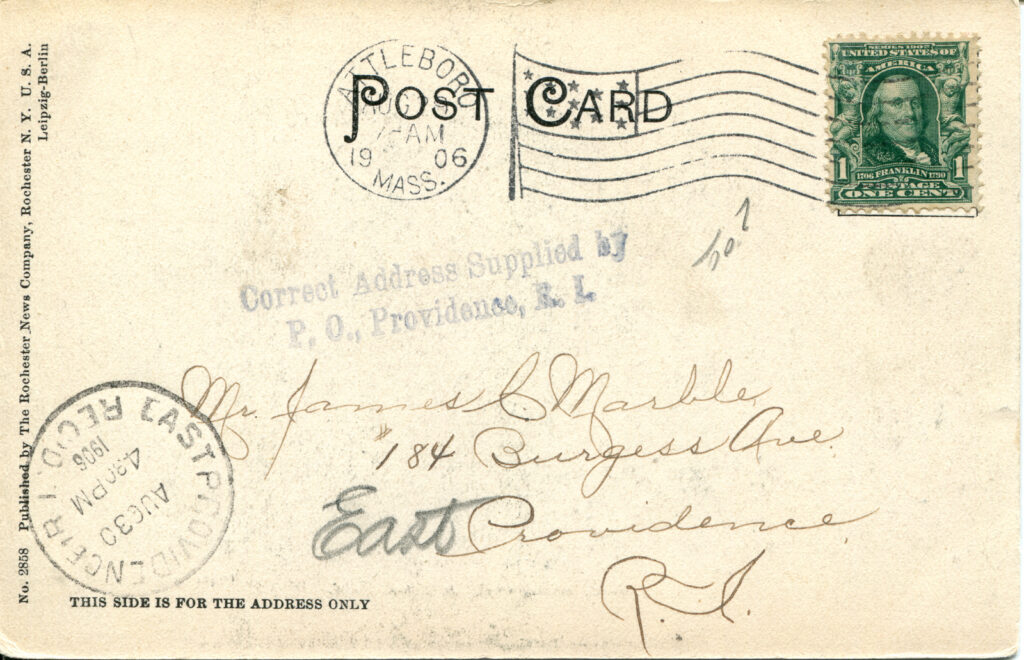 No. 2858 Published by The Rochester News Company, Rochester N. Y. U. S. A.
Leipzig-Berlin
POST CARD
ATTLEBORO
AUG
AM
19 06
MASS.
SERIES 1902
UNITED STATES OF
AMERICA
1 1
1706 FRANKLIN 1790
POSTAGE
ONE CENT
Correct Address Supplied by
P. O., Providence, R. I.
Mr. James C. Marble
184 Burgess Ave
East Providence
R.I.
EAST PROVIDENCE R.I. REC'D.
AUG 30
430 PM
1906
THIS SIDE IS FOR THE ADDRESS ONLY